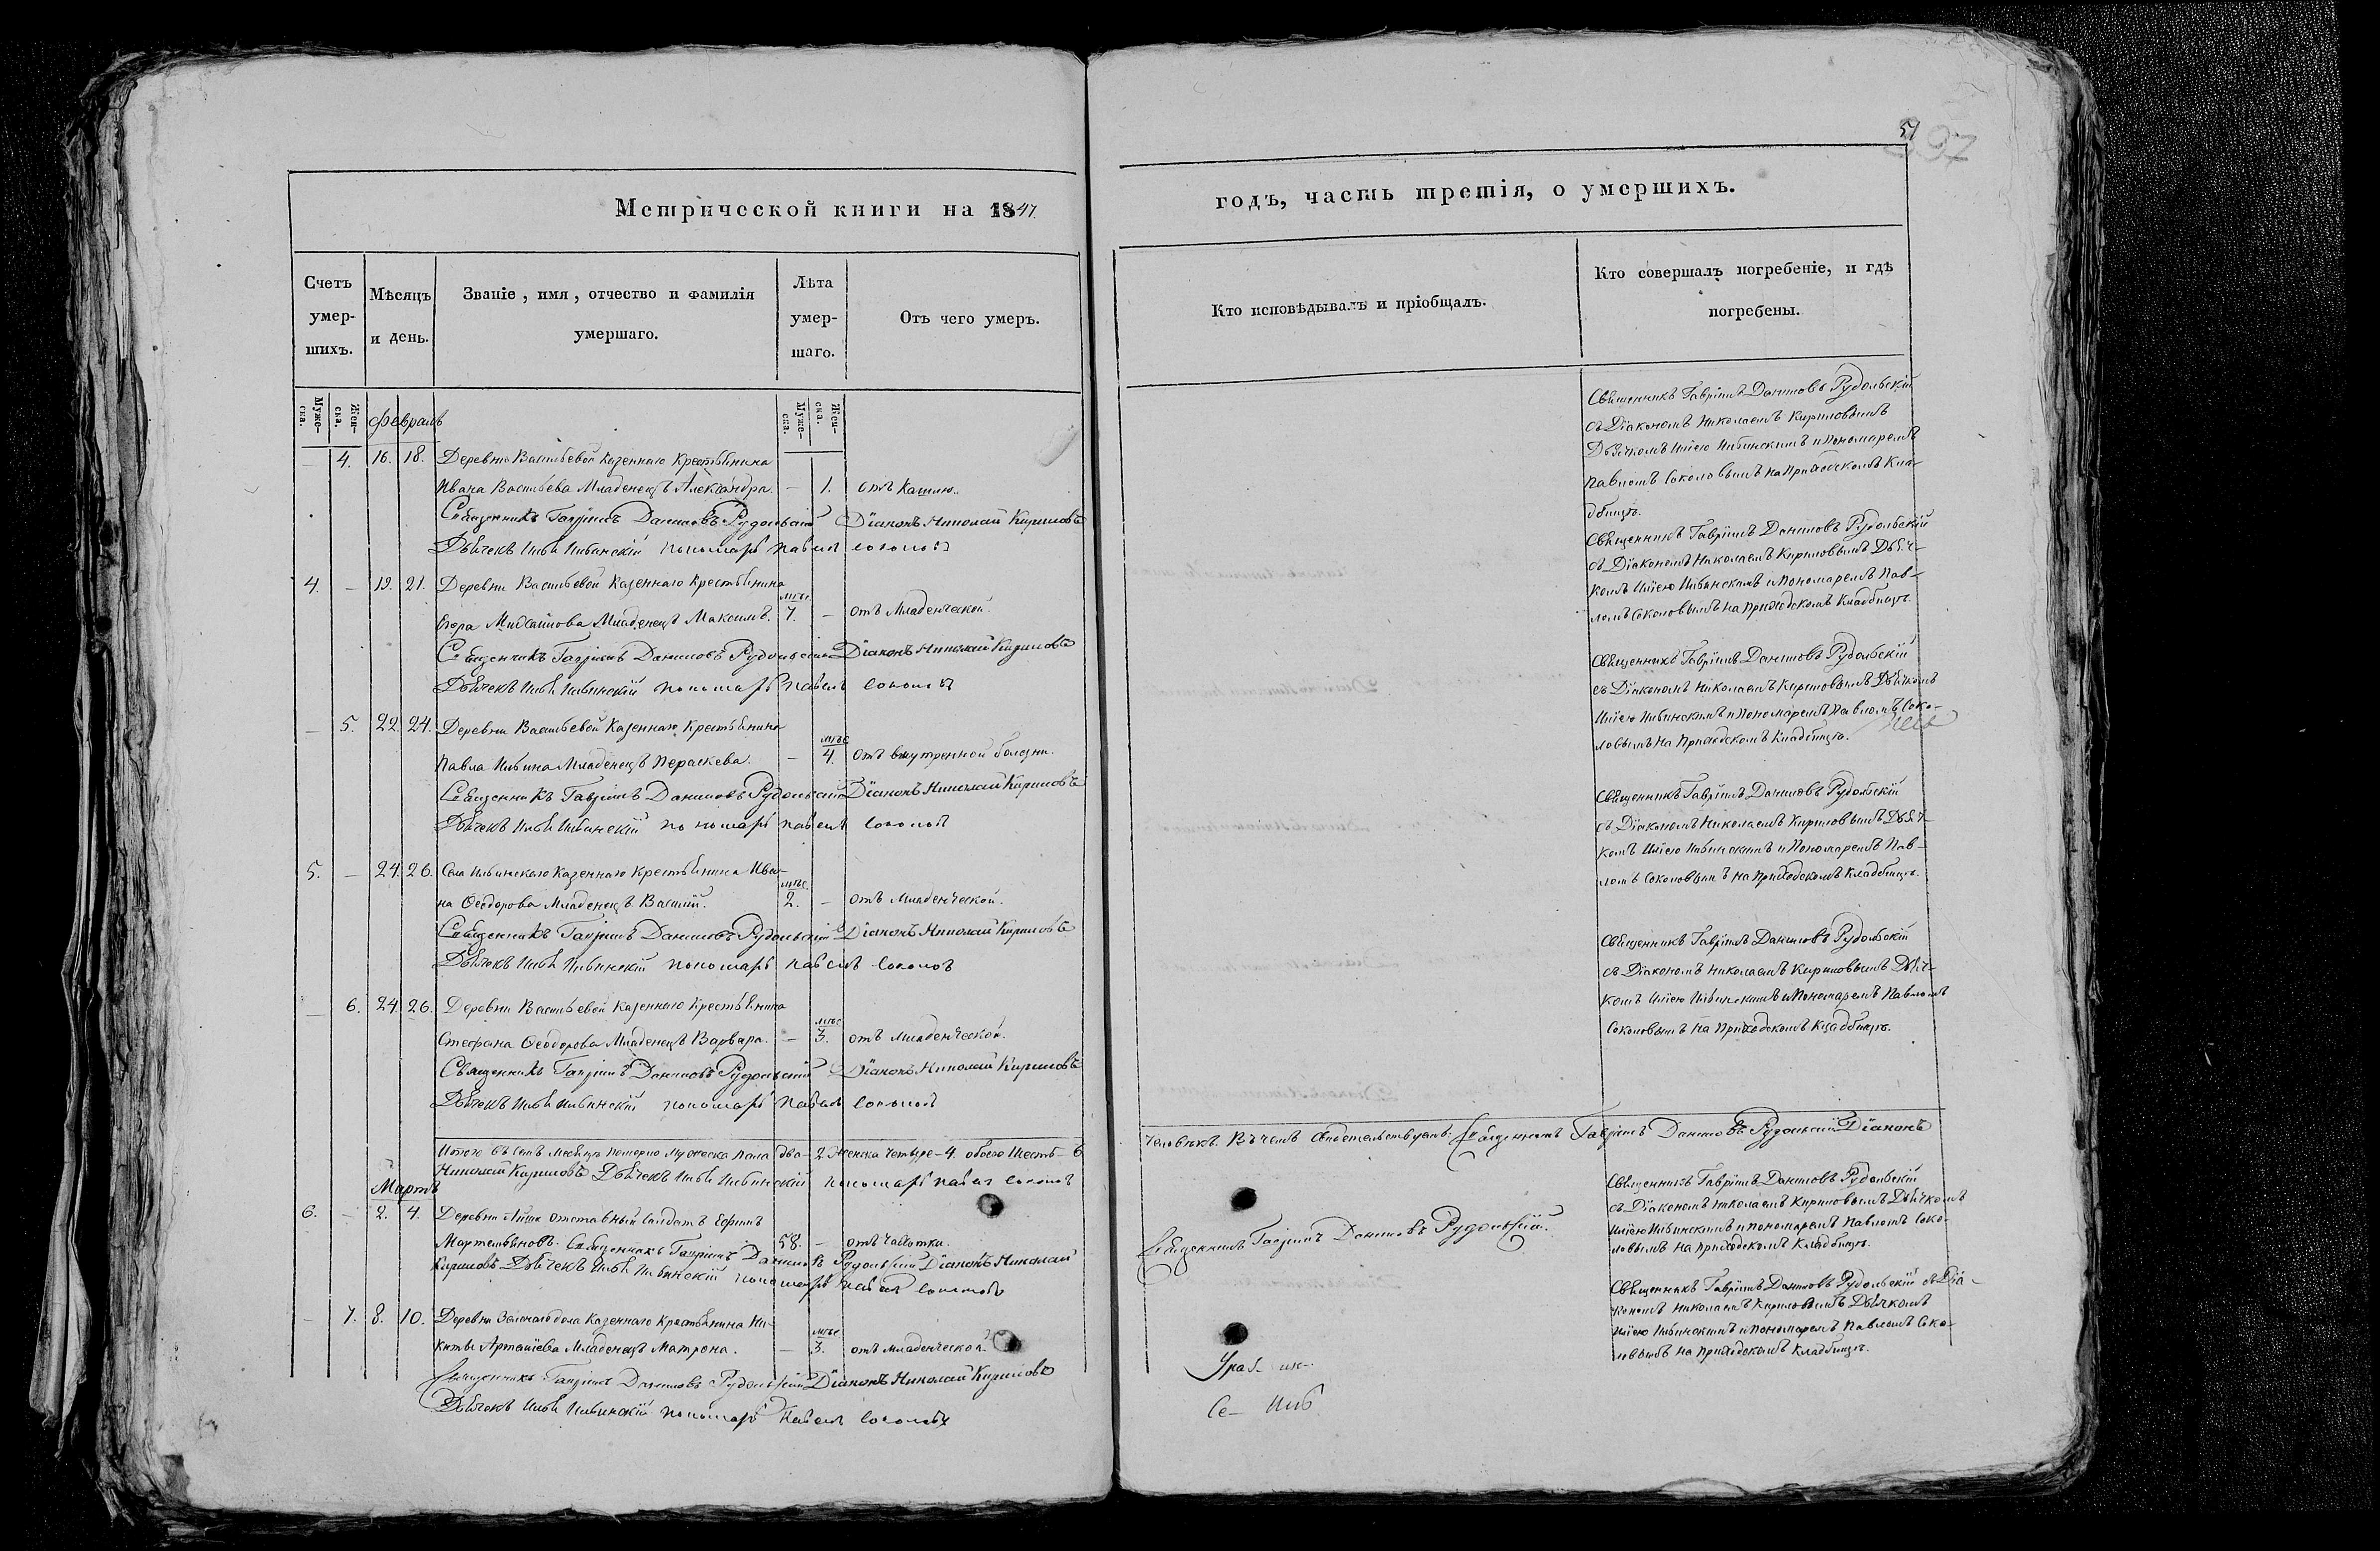 51
397
Метрической книги на 1847.
годъ, часть третія, о умершихъ.
Счетъ умер-шихъ.
Мѣсяцъ и день.
Званіе, имя, отчество и фамилія умершаго.
Лѣта умер-шаго.
Отъ чего умеръ.
Кто исповѣдывалъ и пріобщалъ.
Кто совершалъ погребеніе, и гдѣ погребены.
Муже-ска.
Жен-ска.
Муже-ска.
Жен-ска.
Февраль
4. 16. 18. Деревни Васильевой Казеннаго Крестьянина
Ивана Васильева Младенецъ Александра. — 1. отъ Кашлю.
Священникъ Гавріилъ Даниловъ Рудольскій Діаконъ Николай Кириловъ
Дьячекъ Илья Ильинскій пономарь Павелъ Соколовъ
Священникъ Гавріилъ Даниловъ Рудольскій
съ Діакономъ Николаемъ Кириловымъ
Дьячкомъ Иліею Ильинскимъ и Пономаремъ
Павломъ Соколовымъ на Приходскомъ Кла-
дбищѣ.
4. — 19. 21. Деревни Васильевой Казеннаго Крестьянина
Егора Михайлова Младенецъ Максимъ. мѣс. 7. — отъ Младенческой.
Священникъ Гавріилъ Даниловъ Рудольскій Діаконъ Николай Кириловъ
Дьячекъ Илья Ильинскій пономарь Павелъ Соколовъ
Священникъ Гавріилъ Даниловъ Рудольскій
съ Діакономъ Николаемъ Кириловымъ Дьяч-
комъ Иліею Ильинскимъ и Пономаремъ Пав-
ломъ Соколовымъ на Приходскомъ Кладбищѣ.
— 5. 22. 24. Деревни Васильевой Казеннаго Крестьянина
Павла Ильина Младенецъ Параскева. — мѣс. 4. отъ внутренной болезни.
Священникъ Гавріилъ Даниловъ Рудольскій Діаконъ Николай Кириловъ
Дьячекъ Илья Ильинскій пономарь Павелъ Соколовъ
Священникъ Гавріилъ Даниловъ Рудольскій
съ Діакономъ Николаемъ Кириловымъ Дьячкомъ
Иліею Ильинскимъ и Пономаремъ Павломъ Соко-
ловымъ на Приходскомъ Кладбищѣ.
5. — 24. 26. Села Ильинскаго Казеннаго Крестьянина Ива-
на Ѳеодорова Младенецъ Василій. мѣс. 2. — отъ Младенческой.
Священникъ Гавріилъ Даниловъ Рудольскій Діаконъ Николай Кириловъ
Дьячекъ Илья Ильинскій пономарь Павелъ Соколовъ
Священникъ Гавріилъ Даниловъ Рудольскій
съ Діакономъ Николаемъ Кириловымъ Дьяч-
комъ Иліею Ильинскимъ и Пономаремъ Пав-
ломъ Соколовымъ на Приходскомъ Кладбищѣ.
— 6. 24. 26. Деревни Васильевой Казеннаго Крестьянина
Стефана Ѳеодорова Младенецъ Варвара. — мѣс. 3. отъ младенческой.
Священникъ Гавріилъ Даниловъ Рудольскій Діаконъ Николай Кириловъ
Дьячекъ Илья Ильинскій пономарь Павелъ Соколовъ
Священникъ Гавріилъ Даниловъ Рудольскій
съ Діакономъ Николаемъ Кириловымъ Дьяч-
комъ Иліею Ильинскимъ и Пономаремъ Павломъ
Соколовымъ на Приходскомъ Кладбищѣ.
Итого въ семъ месяцѣ померло мужеска пола два — 2. Женска четыре — 4. обоего Шесть — 6
человѣкъ. Въ чемъ свидетельствуемъ: Священникъ Гавріилъ Даниловъ Рудольскій Діаконъ
Николай Кириловъ Дьячекъ Илья Ильинскій пономарь Павелъ Соколовъ
Мартъ
6. — 2. 4. Деревни отставный Солдатъ Ефимъ
Мартемьяновъ. 58. — отъ чахотки.
Священникъ Гавріилъ Даниловъ Рудольскій Діаконъ Николай
Кириловъ Дьячекъ Илья Ильинскій пономарь Павелъ Соколовъ
Священникъ Гавріилъ Даниловъ Рудольскій.
Священникъ Гавріилъ Даниловъ Рудольскій
съ Діакономъ Николаемъ Кириловымъ Дьячкомъ
Иліею Ильинскимъ и пономаремъ Павломъ Соко-
ловымъ на приходскомъ Кладбищѣ.
— 7. 8. 10. Деревни Казеннаго Крестьянина Ни-
киты Младенецъ Матрона. — мѣс. 3. отъ младенческой.
Священникъ Гавріилъ Даниловъ Рудольскій Діаконъ Николай Кириловъ
Дьячекъ Илья Ильинскій пономарь Павелъ Соколовъ
Священникъ Гавріилъ Даниловъ Рудольскій съ Діа-
кономъ Николаемъ Кириловымъ Дьячкомъ
Иліею Ильинскимъ и Пономаремъ Павломъ Соко-
ловымъ на Приходскомъ Кладбищѣ.
Се- Иль